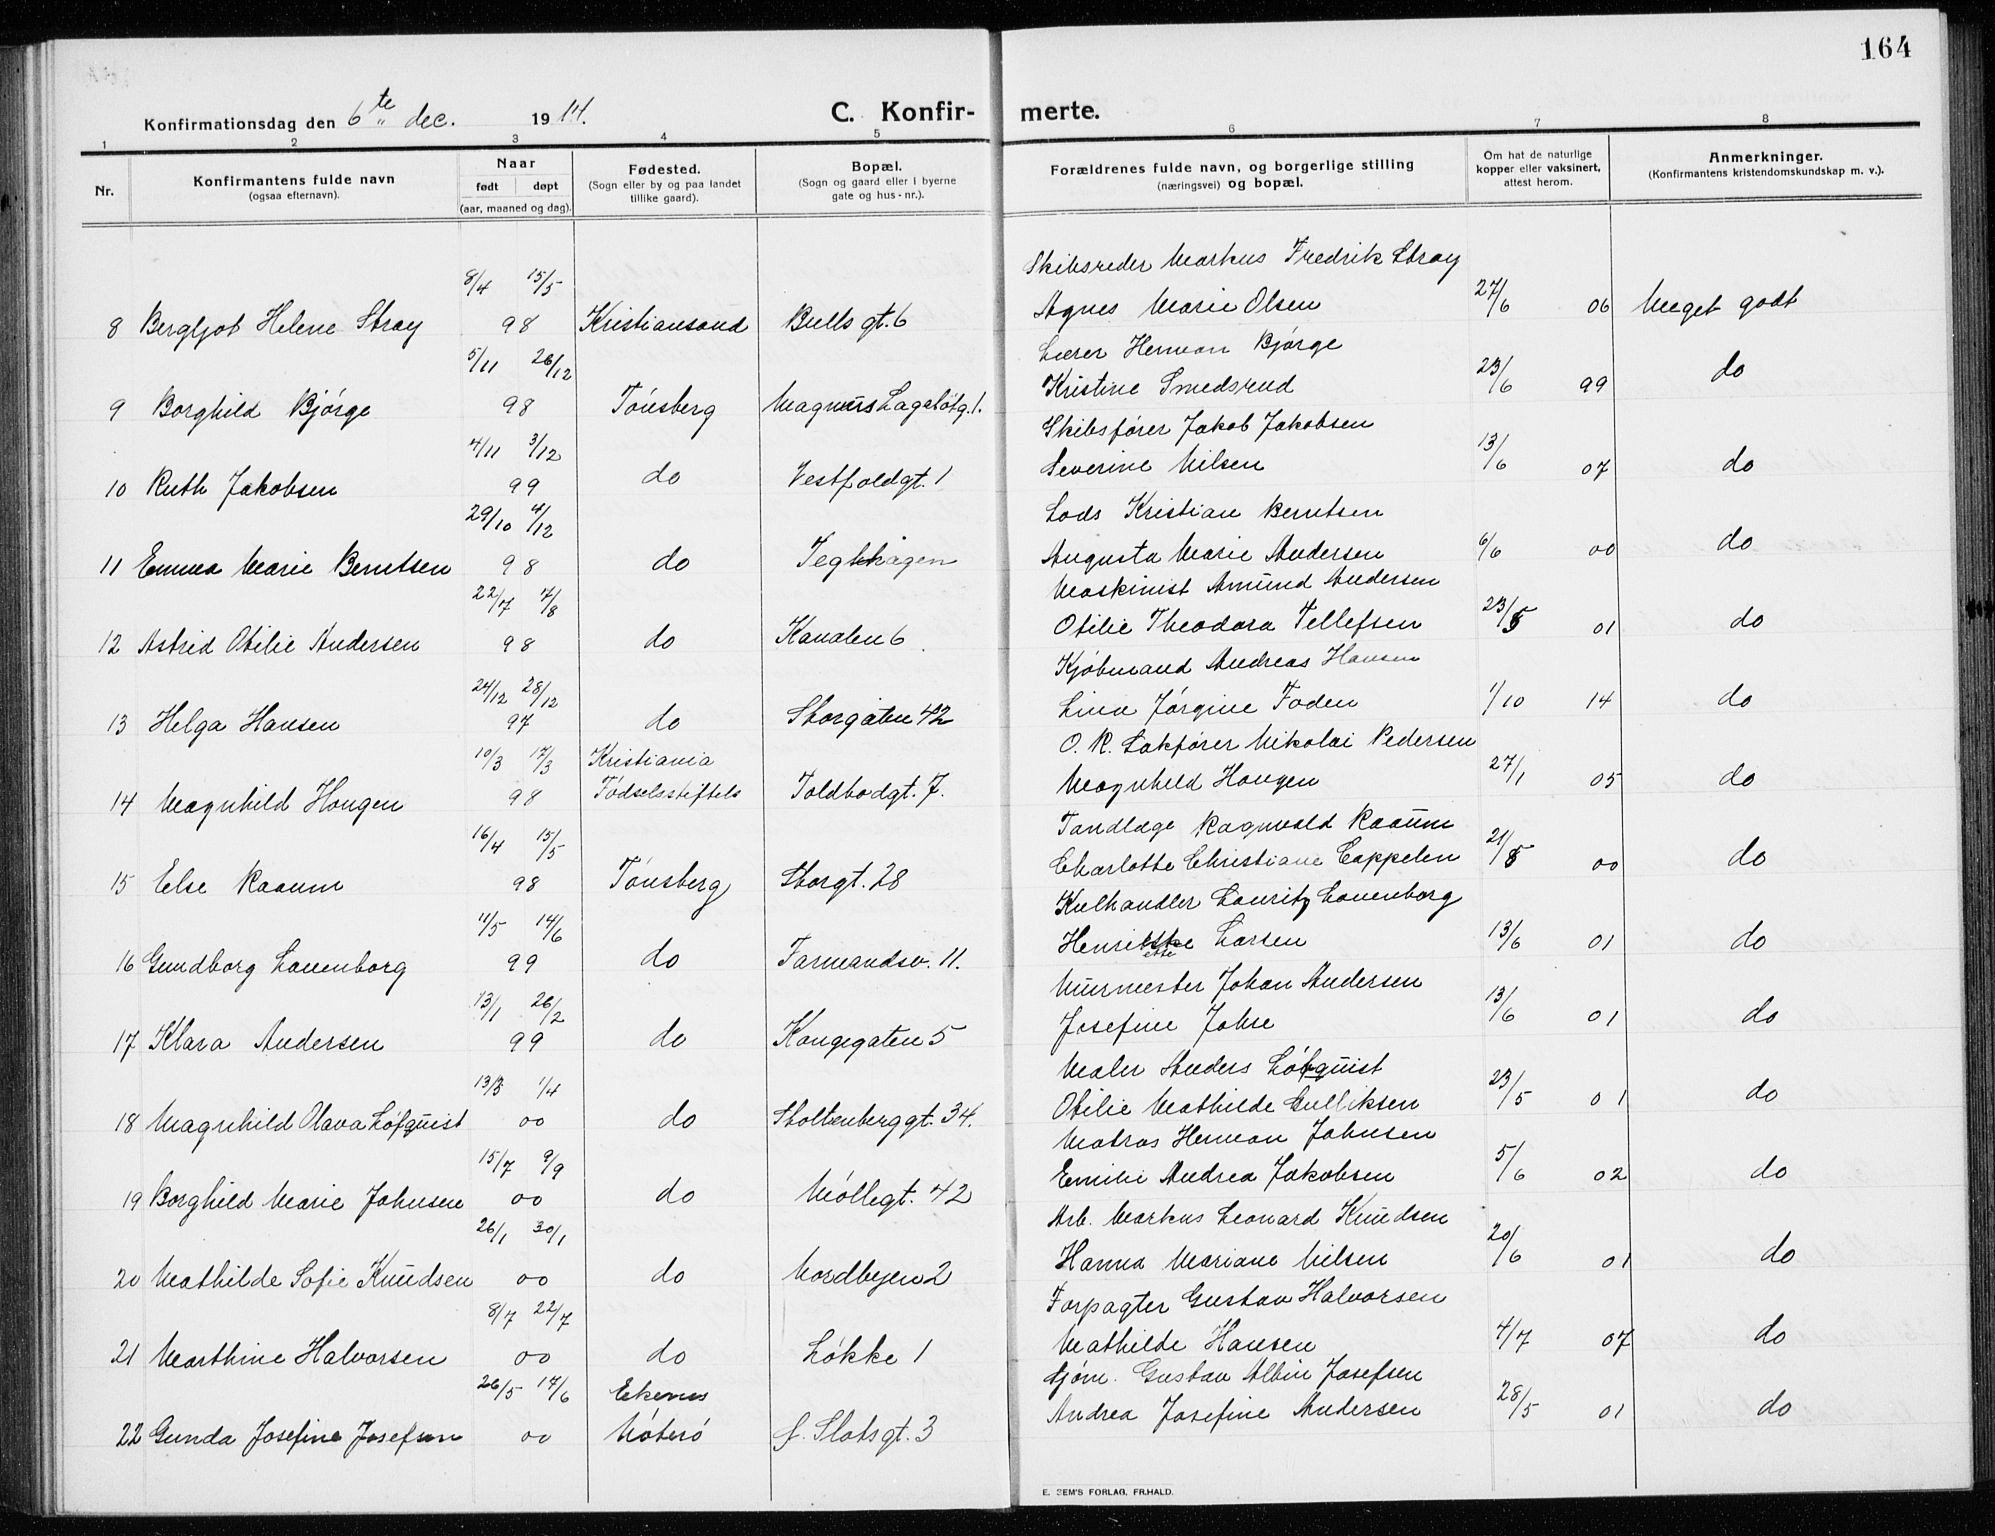 164
Konfirmationsdag den 6te dec. 1914. C. Konfir- merte.
1 2 3 4 5 6 7 8
Nr. Konfirmantens fulde navn (ogsaa efternavn). Naar født døpt (aar, maaned og dag). Fødested. (Sogn eller by og paa landet tillike gaard). Bopæl. (Sogn og gaard eller i byerne gate og hus-nr.). Forældrenes fulde navn, og borgerlige stilling (næringsvei) og bopæl. Om hat de naturlige kopper eller vaksinert, attest herom. Anmerkninger. (Konfirmantens kristendomskundskap m. v.).
8/4 15/5 Skibsreder Markus Fredrik Stray
8 Bergljot Helene Stray 98 Kristiansand Bulls gt. 6 Agnes Marie Olsen 27/6 06 Meget godt
5/11 26/12 Lærer Herman Bjørge
9 Borghild Bjørge 98 Tónsberg Magnus Lagabøtg. 1. Kristine Smedsrud 23/6 99 do
4/11 3/12 Skibsfører Jakob Jakobsen
10 Ruth Jakobsen 99 do Vestfoldgt. 1 Severine Nilsen 13/6 07 do
29/10 4/12 Lods Kristian Berntsen
11 Emma Marie Berntsen 98 do Teglhagen Augusta Marie Andersen 6/6 00 do
22/7 7/8 Maskinist Amund Andersen
12 Astrid Otilie Andersen 98 do Kanalen 6. Otilie Theodora Tellefsen 23/5 01 do
24/12 28/12 Kjøbmand Andreas Hansen
13 Helga Hansen 97 do Storgaten 42 Lina Jørgine Foden 1/10 14 do
10/3 17/3 Kristiania O. K. Sakfører Nikolai Pedersen
14 Magnhild Hougen 98 Fødselsstiftels Toldbodgt. 7. Magnhild Hougen 27/1 05 do
16/4 15/5 Tandlæge Ragnvald Raaum
15 Else Raaum 98 Tónsberg Storgt. 28 Charlotte Christiane Cappelen 21/5 00 do
11/5 14/6 Kulhandler Lauritz Lauenborg
16 Gundborg Lauenborg 99 do Farmandsv. 11. Henriette Larsen 13/6 01 do
13/1 26/2 Murmester Johan Andersen
17 Klara Andersen 99 do Kongegaten 5 Josefine Johse 13/6 01 do
13/3 1/4 Maler Anders Löfquist
18 Magnhild Olava Löfquist 00 do Stoltenberggt. 34. Otilie Mathilde Gulliksen 23/5 01 do
15/7 9/9 Matros Herman Johnsen
19 Borghild Marie Johnsen 00 do Møllegt. 42 Emilie Andrea Jakobsen 5/6 02 do
26/1 30/1 Arb. Markus Leonard Knudsen
20 Mathilde Sofie Knudsen 00 do Nordbyen 2 Hanna Mariane Nilsen 20/6 01 do
8/7 22/7 Forpagter Gustav Halvorsen
21 Marthine Halvorsen 00 do Løkke 1 Mathilde Hansen 4/7 07 do
26/5 17/6 Ekenes sjøm. Gustav Albin Josefsen
22 Gunda Josefine Josefsen 00 Nøterø f. Slotsgt. 3 Andrea Josefine Andersen 28/5 01 do
E. SEM'S FORLAG, FR.HALD.